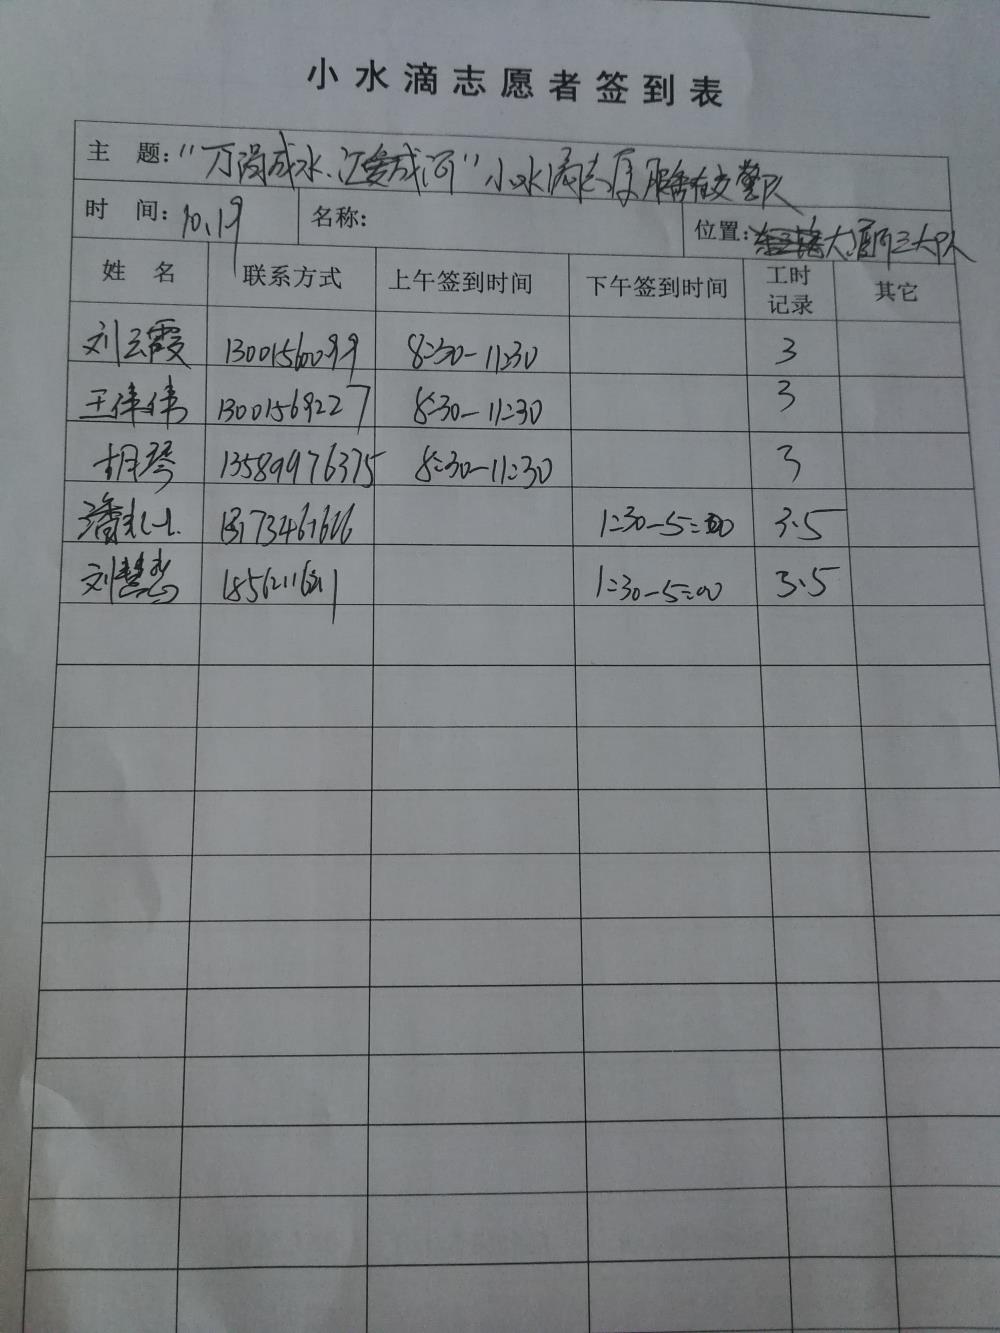 小水滴志愿者签到表
主 题：“万滴成水、汇爱成河”小水滴志愿服务在交警队
时 间：10.19 名称： 位置：大厦所三大队
姓 名 联系方式 上午签到时间 下午签到时间 工时记录 其它
刘云霞 13001560099 8:30-11:30 3
王伟伟 13001569227 8:30-11:30 3
胡琴 13589976375 8:30-11:30 3
潘 13173461666 1:30-5:00 3.5
刘慧 1:30-5:00 3.5